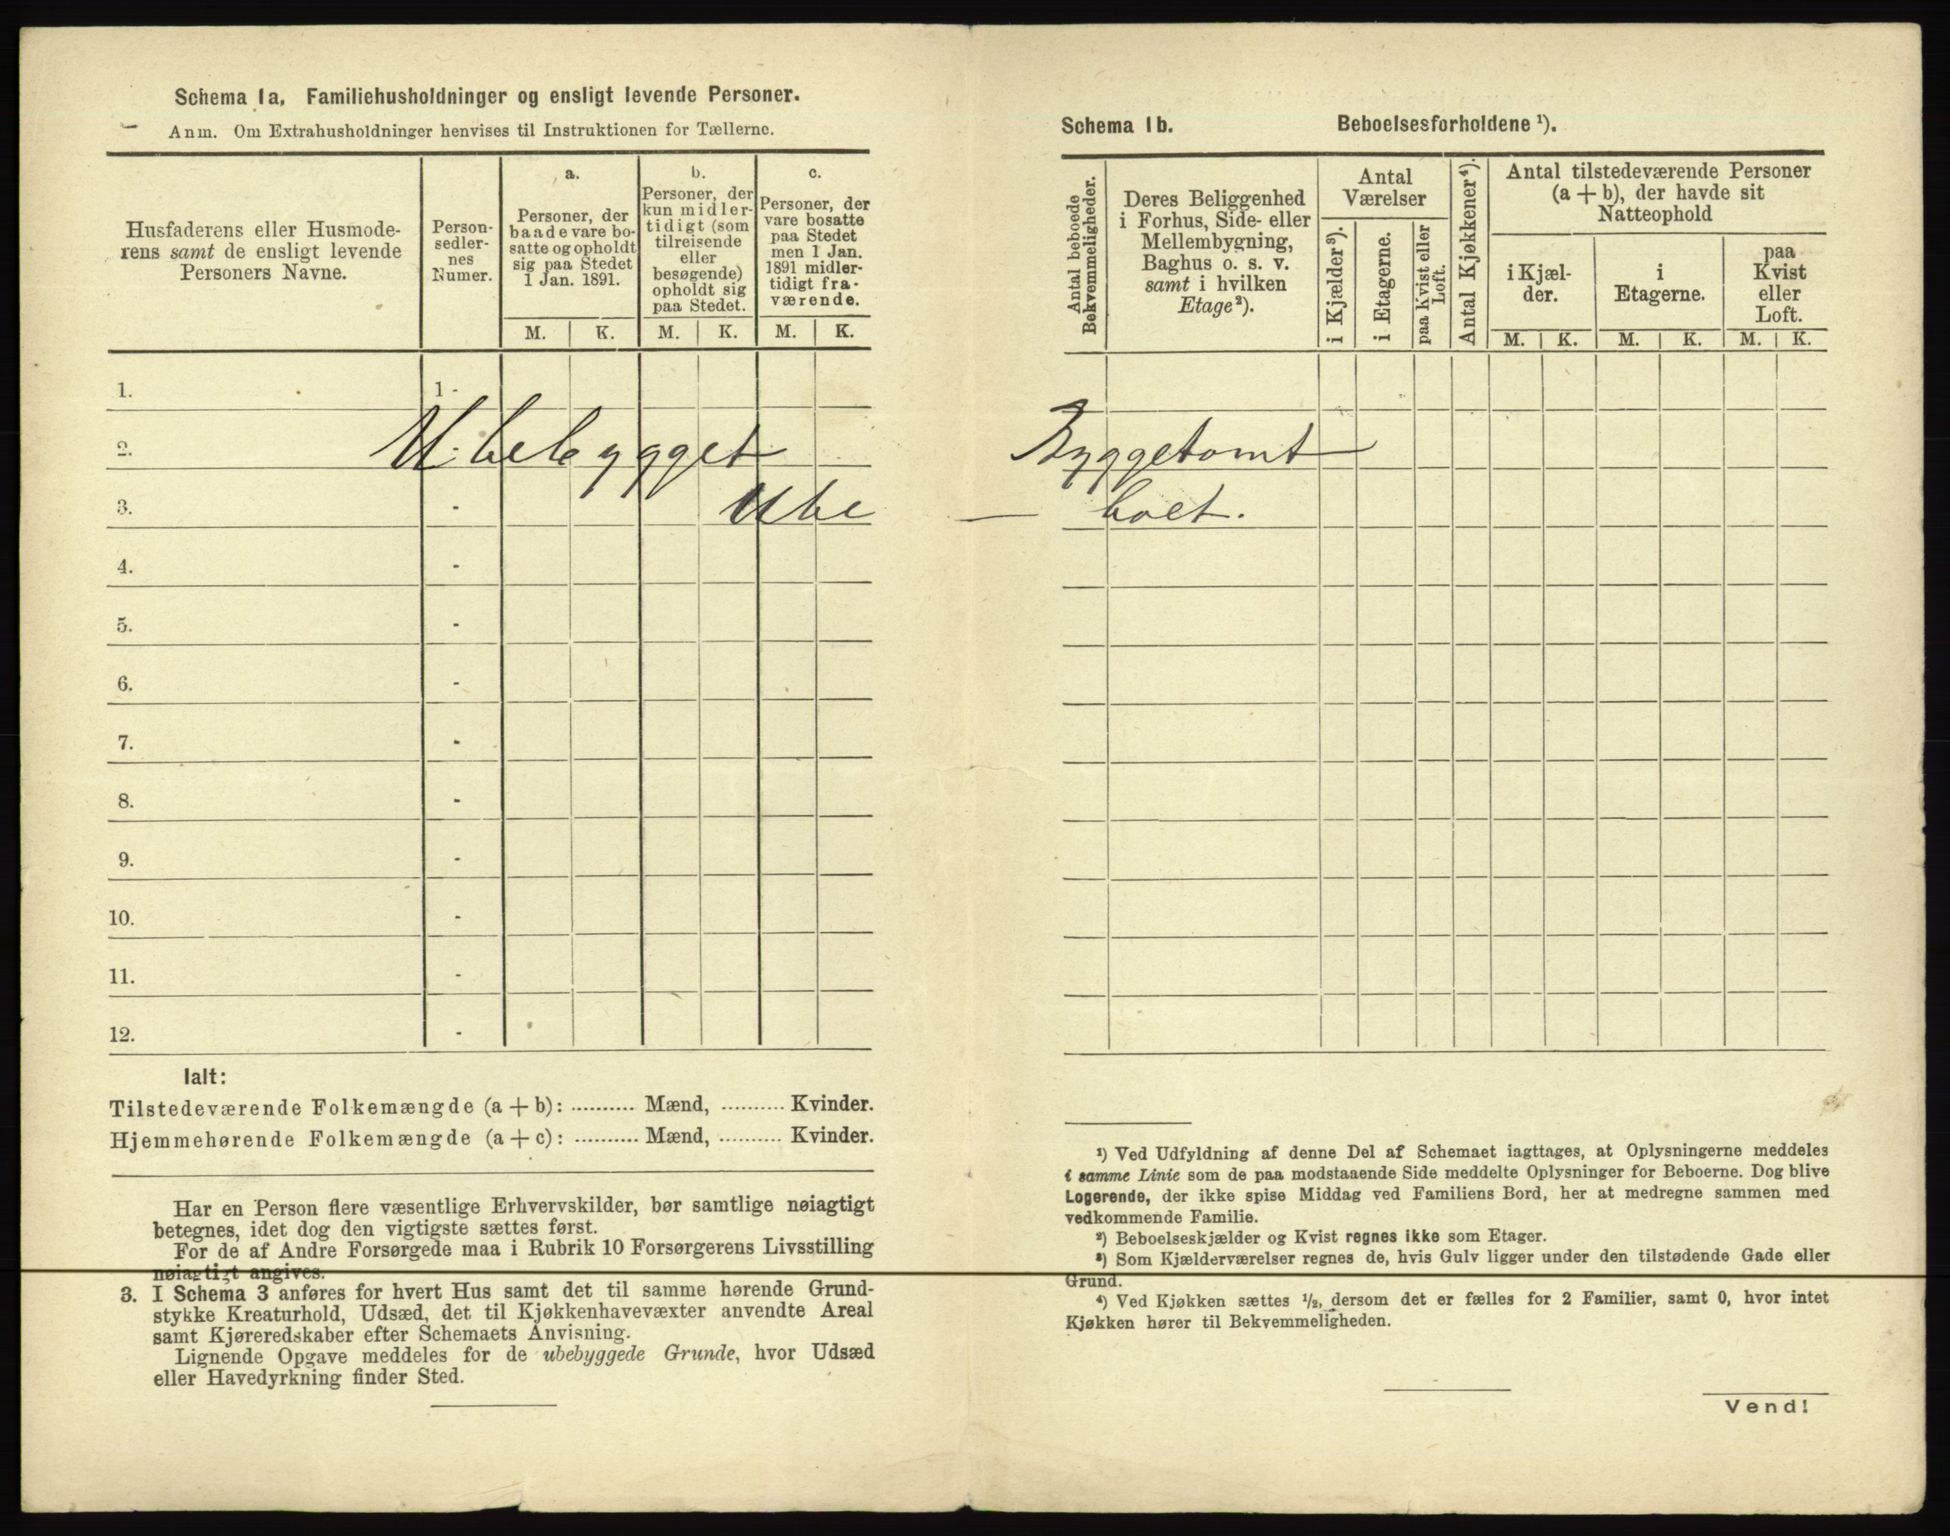 Schema 1a. Familiehusholdninger og ensligt levende Personer.
Anm. Om Extrahusholdninger henvises til Instruktionen for Tællerne.
Husfaderens eller Husmode-
rens samt de ensligt levende
Personers Navne.
Person-
sedler-
nes
Numer.
a.
Personer, der
baade vare bo-
satte og opholdt
sig paa Stedet
1 Jan. 1891.
b.
Personer, der
kun midler-
tidigt (som
tilreisende
eller
besøgende)
opholdt sig
paa Stedet.
c.
Personer, der
vare bosatte
paa Stedet
men 1 Jan.
1891 midler-
tidigt fra-
værende.
M. K. M. K. M. K.
1. 1 -
2. Ubebygget
3. - Ube
4. -
5. -
6. -
7. -
8. -
9. -
10. -
11. -
12. -
Ialt:
Tilstedeværende Folkemængde (a + b): .......... Mænd, .......... Kvinder.
Hjemmehørende Folkemængde (a + c): .......... Mænd, .......... Kvinder.
Har en Person flere væsentlige Erhvervskilder, bør samtlige nøiagtigt
betegnes, idet dog den vigtigste sættes først.
For de af Andre Forsørgede maa i Rubrik 10 Forsørgerens Livsstilling
nøiagtigt angives.
3. I Schema 3 anføres for hvert Hus samt det til samme hørende Grund-
stykke Kreaturhold, Udsæd, det til Kjøkkenhavevæxter anvendte Areal
samt Kjøreredskaber efter Schemaets Anvisning.
Lignende Opgave meddeles for de ubebyggede Grunde, hvor Udsæd
eller Havedyrkning finder Sted.
Schema 1b. Beboelsesforholdene ¹).
Antal beboede
Bekvemmeligheder.
Deres Beliggenhed
i Forhus, Side- eller
Mellembygning,
Baghus o. s. v.
samt i hvilken
Etage²).
Antal
Værelser
i Kjælder³).
i Etagerne.
paa Kvist eller
Loft.
Antal Kjøkkener⁴).
Antal tilstedeværende Personer
(a + b), der havde sit
Natteophold
i Kjæl-
der.
i
Etagerne.
paa
Kvist
eller
Loft.
M. K. M. K. M. K.
Byggetomt
— boet.
¹) Ved Udfyldning af denne Del af Schemaet iagttages, at Oplysningerne meddeles
i samme Linie som de paa modstaaende Side meddelte Oplysninger for Beboerne. Dog blive
Logerende, der ikke spise Middag ved Familiens Bord, her at medregne sammen med
vedkommende Familie.
²) Beboelseskjælder og Kvist regnes ikke som Etager.
³) Som Kjælderværelser regnes de, hvis Gulv ligger under den tilstødende Gade eller
Grund.
⁴) Ved Kjøkken sættes ½, dersom det er fælles for 2 Familier, samt 0, hvor intet
Kjøkken hører til Bekvemmeligheden.
Vend!